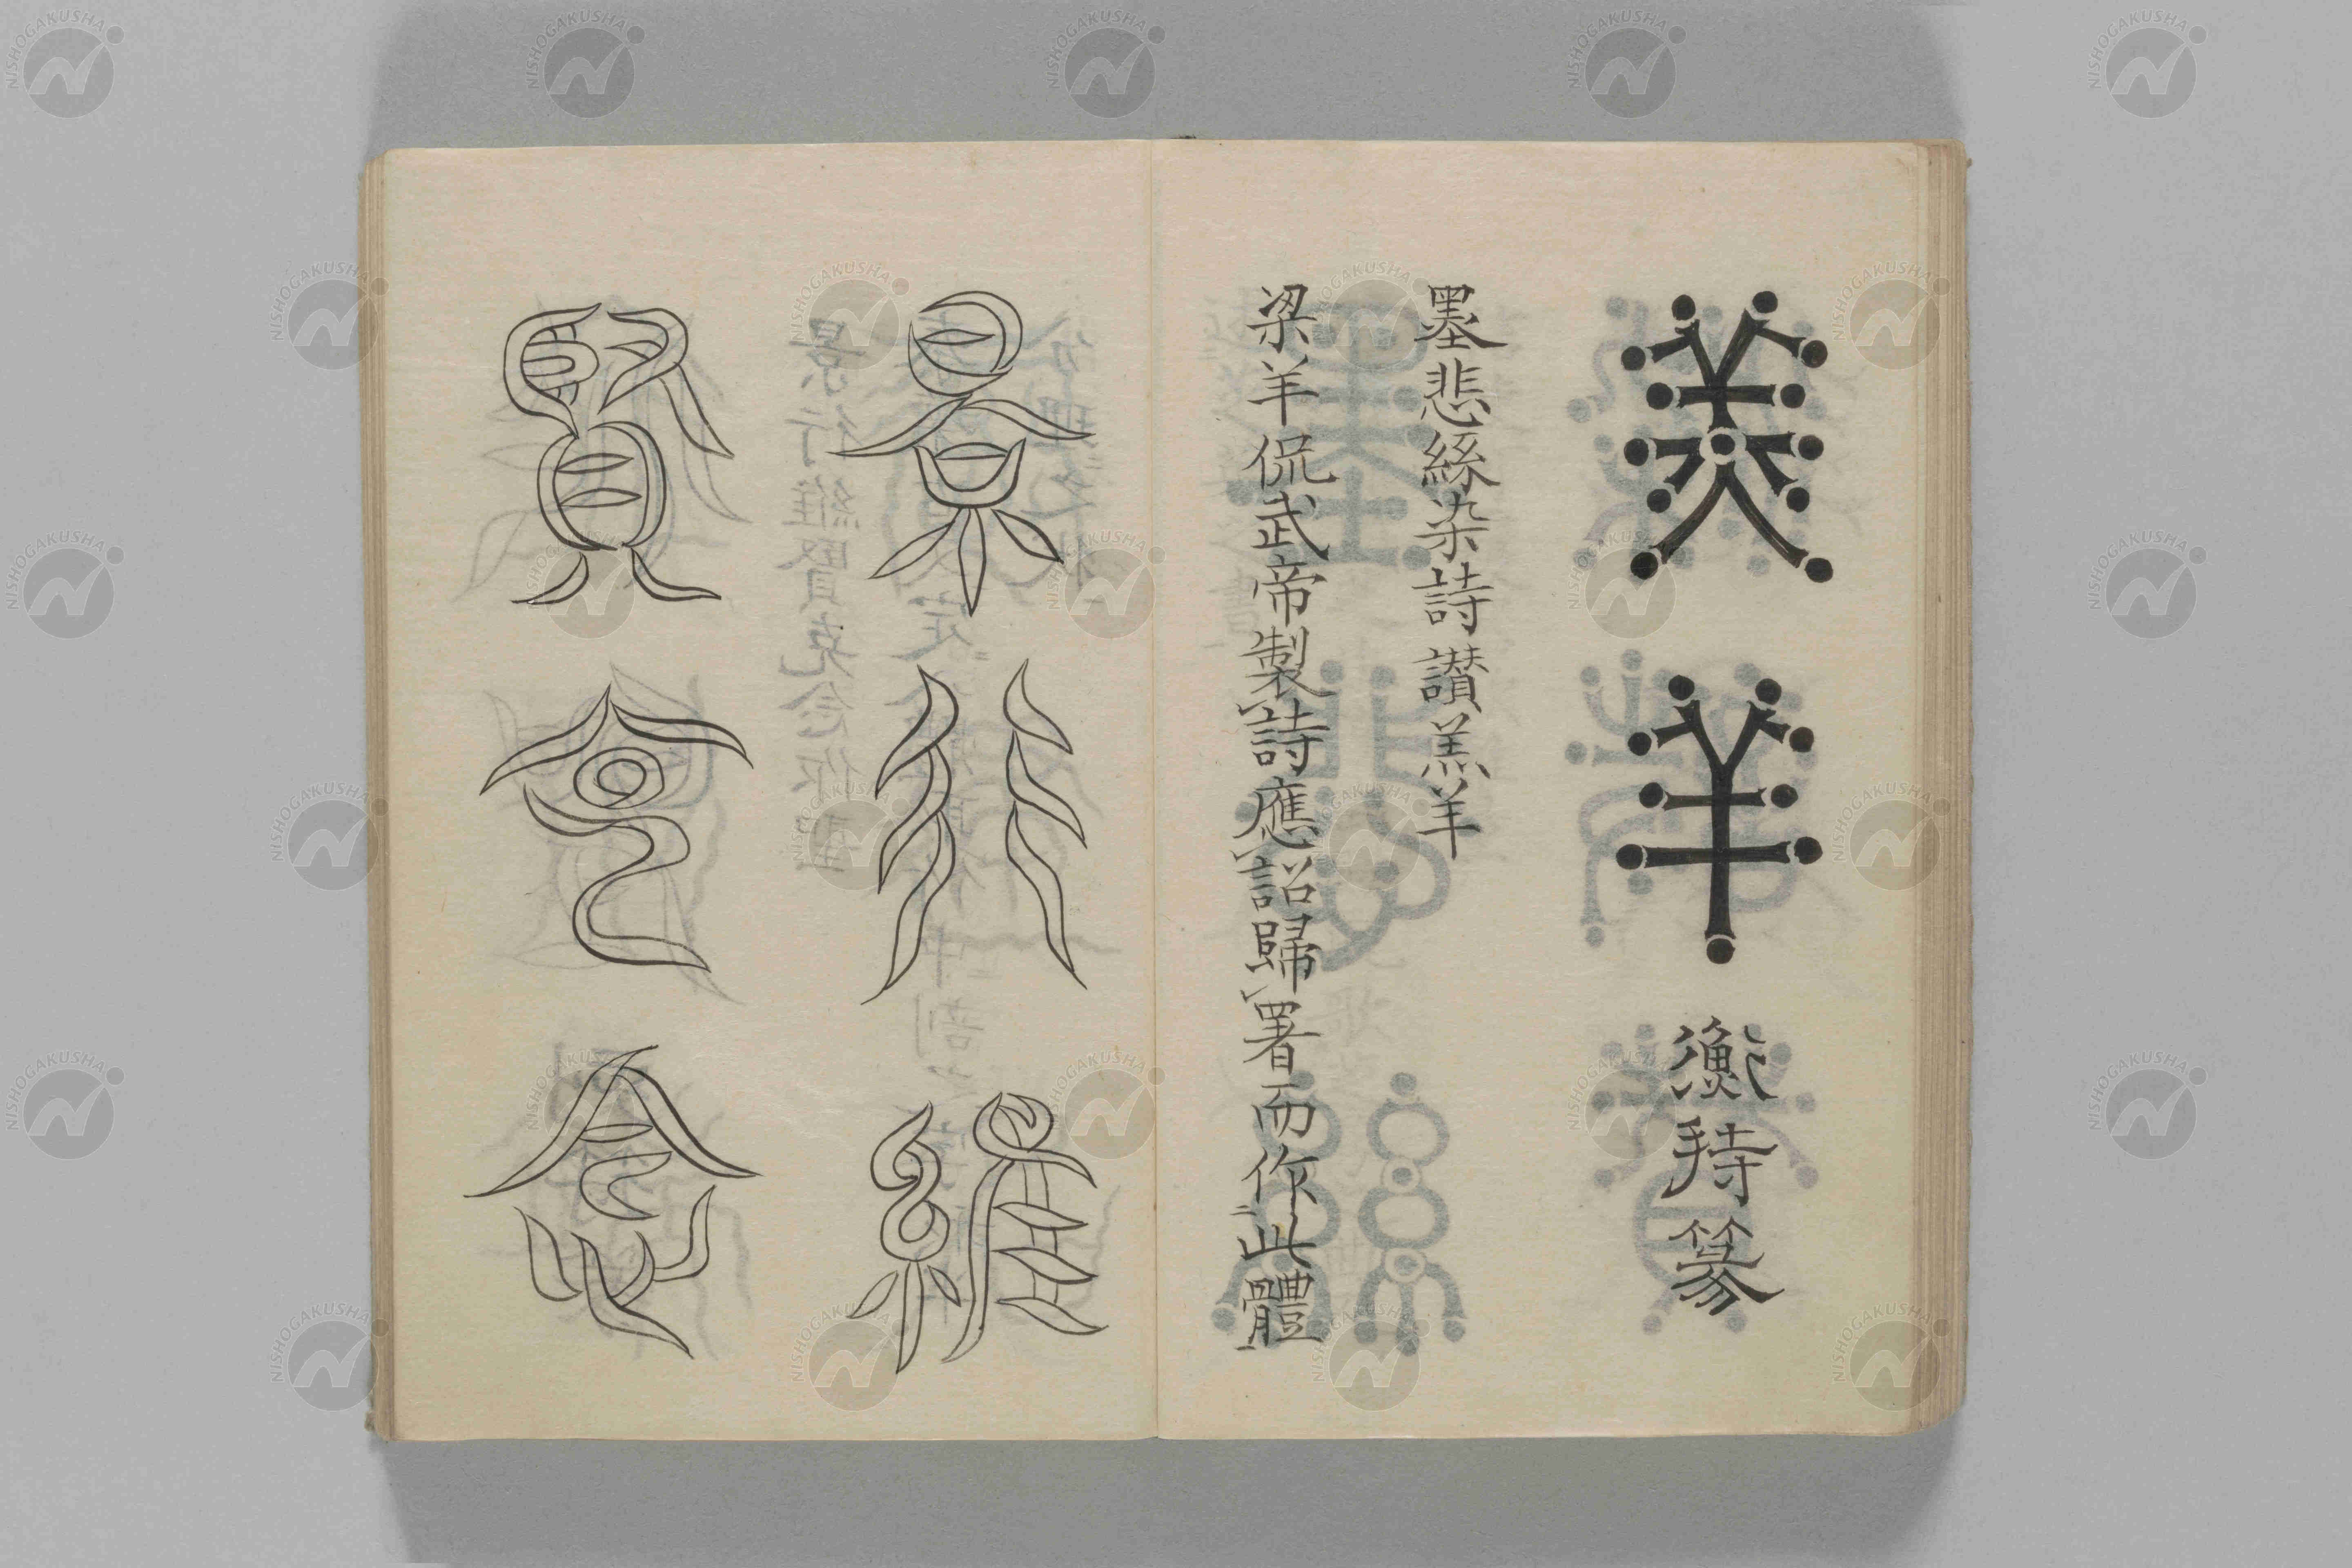 羔羊 衡持篆
墨悲絲染詩讃羔羊
梁羊侃武帝製詩應詔歸署而作此體
景行維
賢剋念
NISHOGAKUSHA